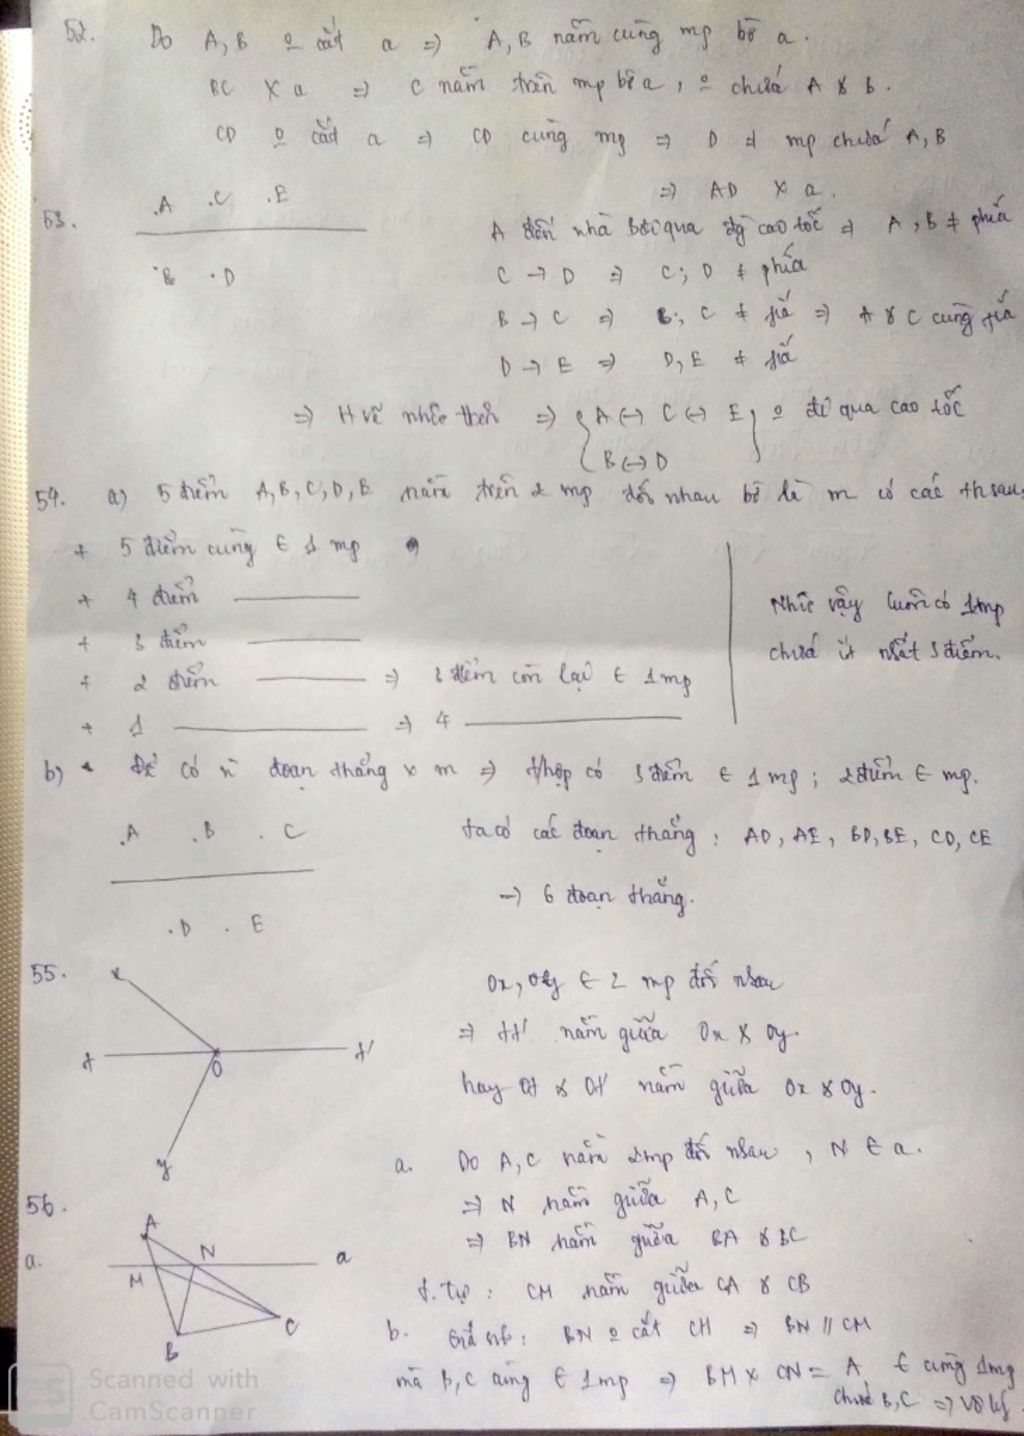 52. Do A, B o cắt a => A, B nằm cùng mp bờ a.
BC X a => C nằm trên mp bờ a, o chứa A & B.
CD o cắt a => CD cùng mp => D ≠ mp chứa A, B
=> AD X a.
53. .A .C .E
.B .D
A đến nhà B đi qua đg cao tốc => A, B ≠ phía
C -> D => C, D ≠ phía
B -> C => B, C ≠ fiá => A & C cùng fiá
D -> E => D, E ≠ fiá
=> H vẽ như trên => { A <-> C <-> E } o đi qua cao tốc
B <-> D
54. a) 5 điểm A, B, C, D, E nằm trên 2 mp đối nhau bờ là m có các th sau:
+ 5 điểm cùng ∈ 1 mp
+ 4 điểm
+ 3 điểm
+ 2 điểm => 3 điểm còn lại ∈ 1 mp
+ 1 => 4
Như vậy luôn có 1 mp
chứa ít nhất 3 điểm.
b) Để có n đoạn thẳng x m => t/hợp có 3 điểm ∈ 1 mp; 2 điểm ∈ mp.
.A .B .C
.D .E
ta có các đoạn thẳng: AD, AE, BD, BE, CD, CE
-> 6 đoạn thẳng.
55. x
t O t'
y
Ox, Oy ∈ 2 mp đối nhau
=> tt' nằm giữa Ox & Oy
hay Ot & Ot' nằm giữa Ox & Oy.
56.
a. A
M N a
B C
a. Do A, C nằm 2mp đối nhau, N ∈ a.
=> N nằm giữa A, C
=> BN nằm giữa BA & BC
t. tự: CM nằm giữa CA & CB
b. Giả sử: BN o cắt CM => BN // CM
mà B, C cùng ∈ 1 mp => BM X CN = A ∈ cùng 1mp
chứa B, C => vô lý.
CS Scanned with
CamScanner